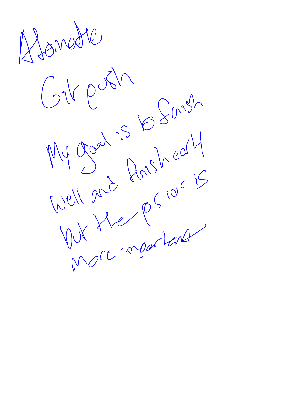 Atomatic
Git push
My goal is to finish
well and finish early
but the prior is
more importance